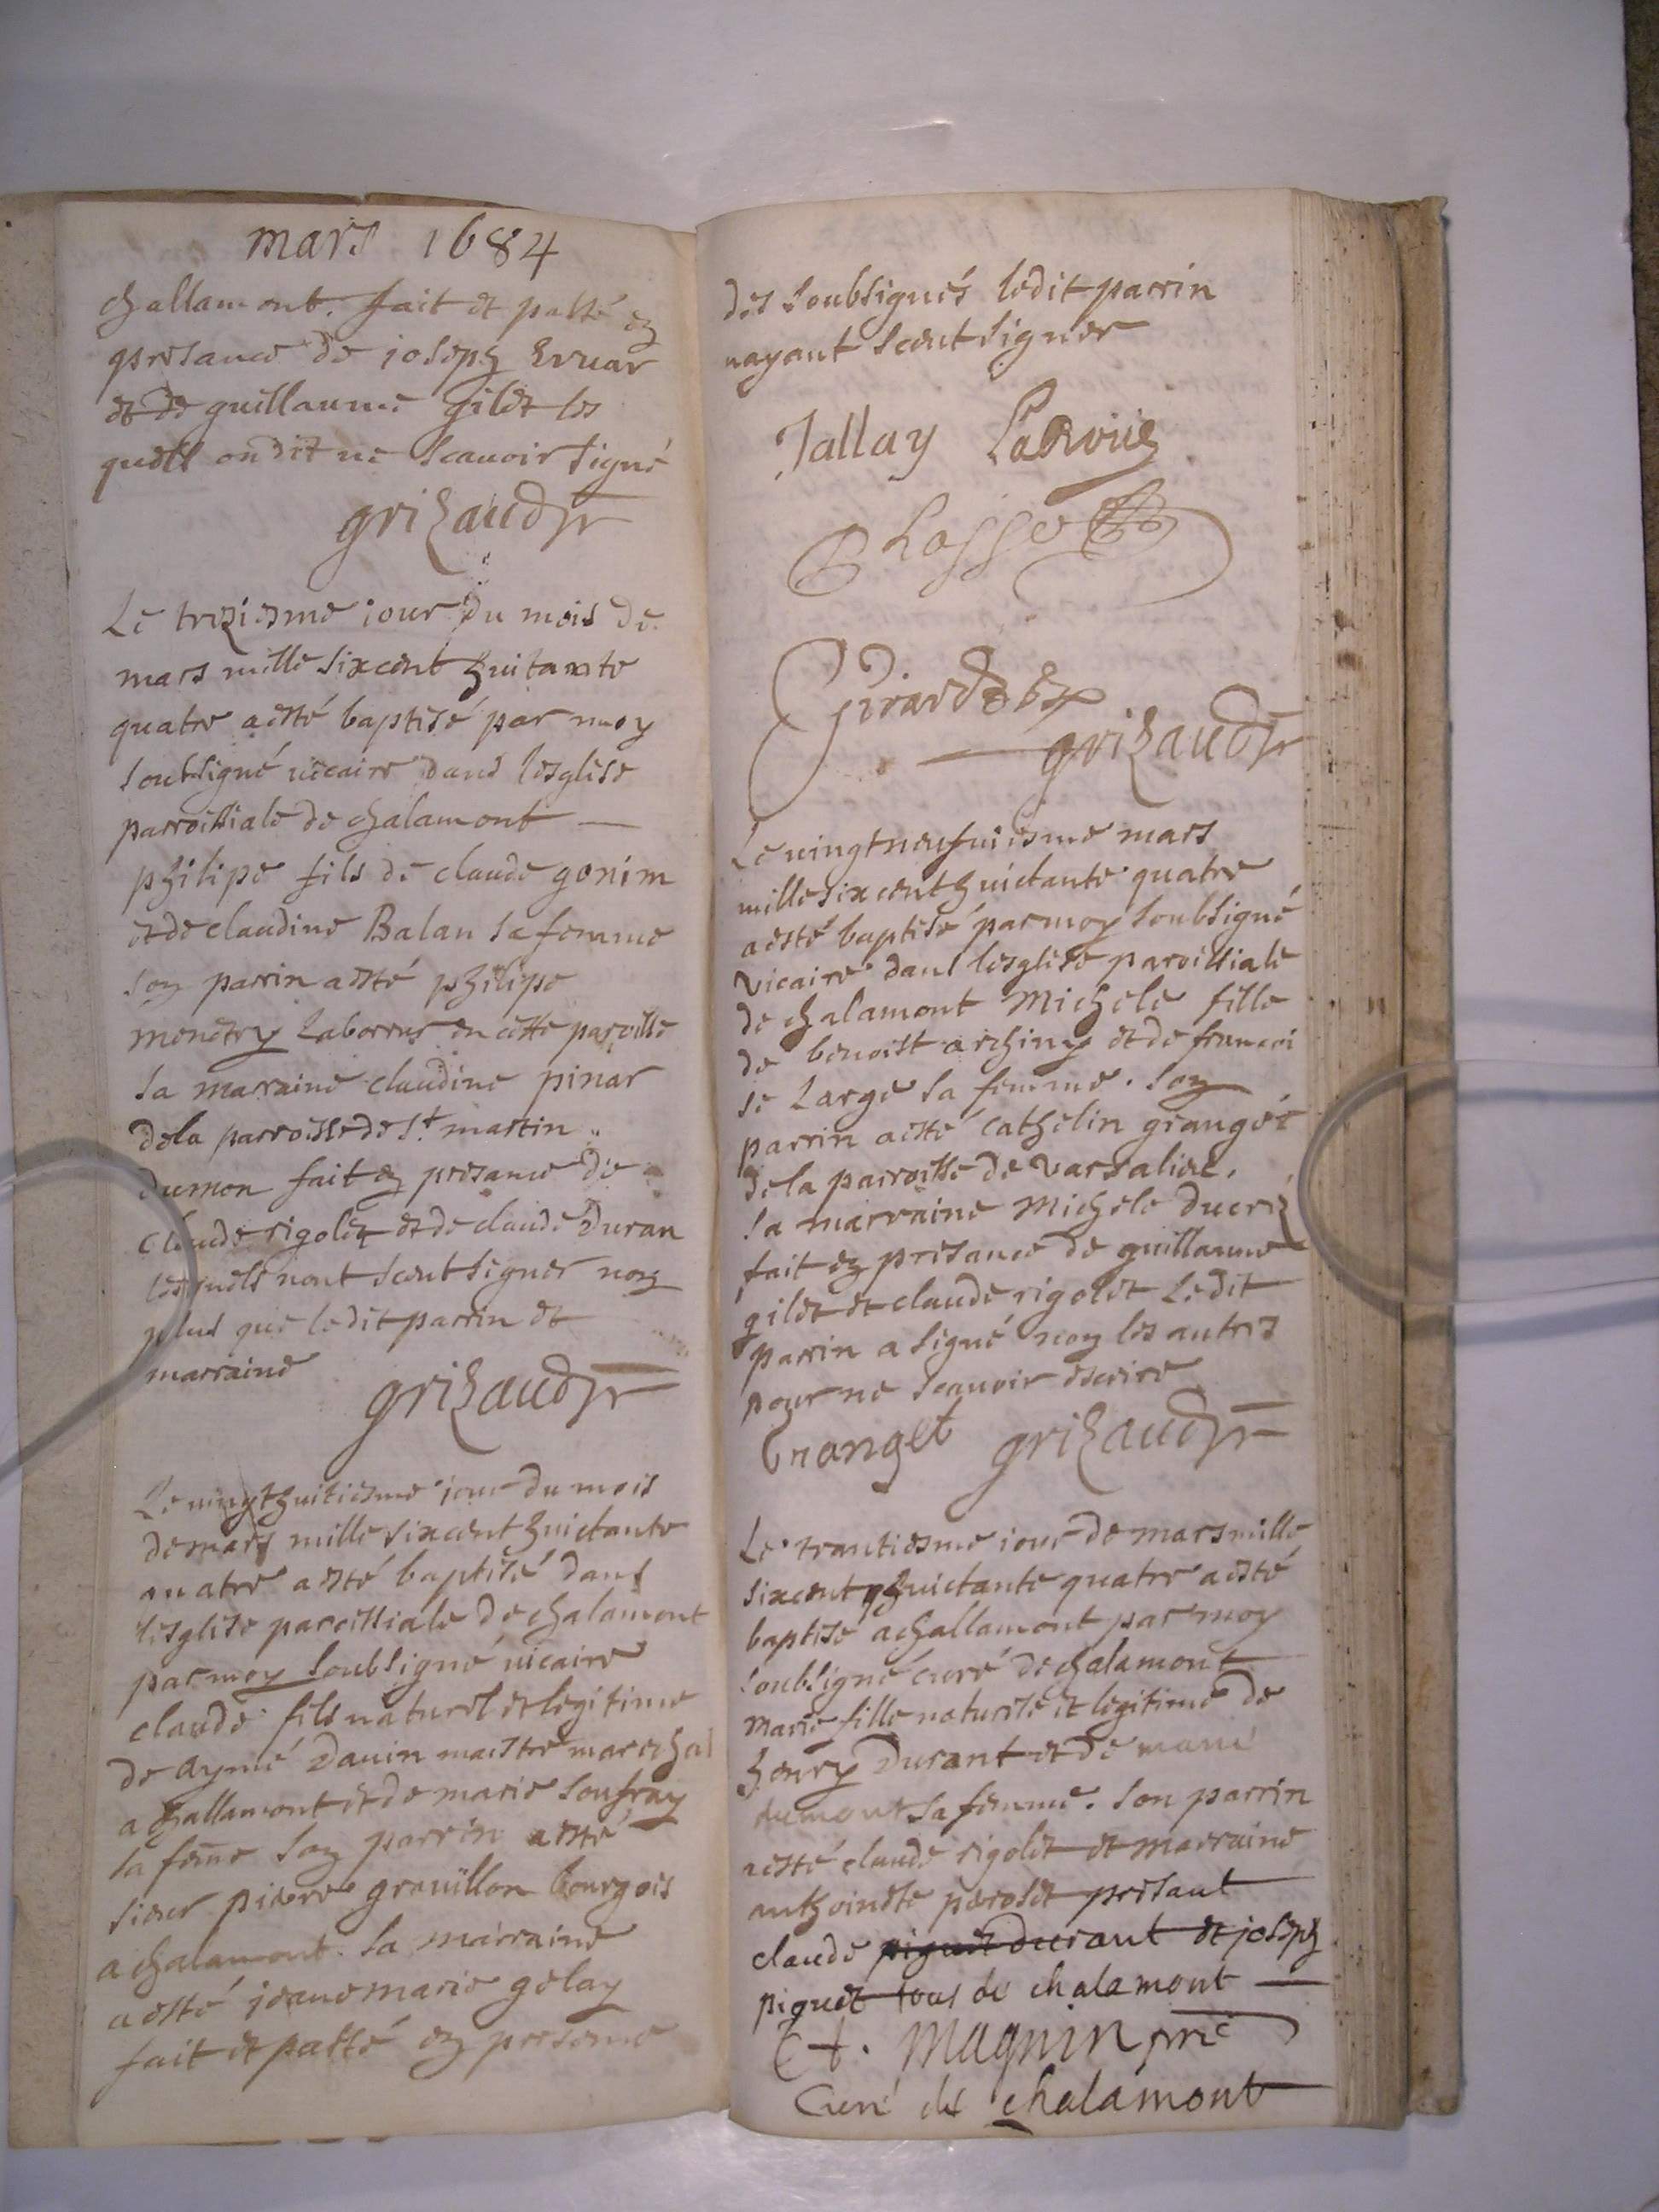 mars 1684
challamont. fait et passé en
presance de joseph Evvar
et de guillaume gilet les
quels on dit ne scavoir signé
grizaud ptr
Le treziesme iour du mois de
mars mille sixcent huitante
quatre aesté baptisé par moy
soubsigné viccaire dans lesglise
parroissiale de chalamont
philipe fils de claude gonim
et de claudine Balan sa femme
son parrin aesté philipe
monetry Laborrus en cette paroisse
sa marraine claudine pinar
dela parroisse de St martin
dumon fait en presance de
claude rigolet et de claude Duran
lesquels nont sceut signer non
plus que ledit parrin et
marraine grizaud ptr
Le vingt huitiesme iour du mois
de mars mille sixcent huictante
quatre aesté baptisé dans
lesglise paroissiale de chalamont
par moy soubsigné vicaire
claude fils naturel et legitime
de aymé Dauin maistre marechal
a challamont et de marie soufray
sa feme son parrin aesté
sieur piderre grouillon bourgois
a chalamont. sa marraine
aesté jeane marie gelay
fait et passé en presence
des soubsignés ledit parrin
nayant sceut signer
Jallay
Losse
Girardet
grizaud ptr
Le vingtneufuiesme mars
mille sixcent huictante quatre
aesté baptisé par moy soubsigné
vicaire dans lesglise paroissiale
de chalamont Michele fille
de benoist archiny et de francoi
se Large sa femme. son
parrin aesté cathelin grangér
de la parroisse de varsalieu.
sa marraine Michele Ducriz
fait en presance de guillaume
gilet et claude rigolet Ledit
parrin a signé non les autres
pour ne scavoir escrire
Granget grizaud ptr
Le trantiesme iour de mars mille
sixcent huictante quatre aesté
baptisé achallamont par moy
soubsigné curé de chalamont
Marie fille naturele et legitime de
henry Durant et de marie
dumont sa femme. son parrin
aesté claude rigolet et marraine
anthoinette peroset presant
claude piquet durant et joseph
piquet tous de chalamont
Ct. Magnin pre
Curé de chalamont